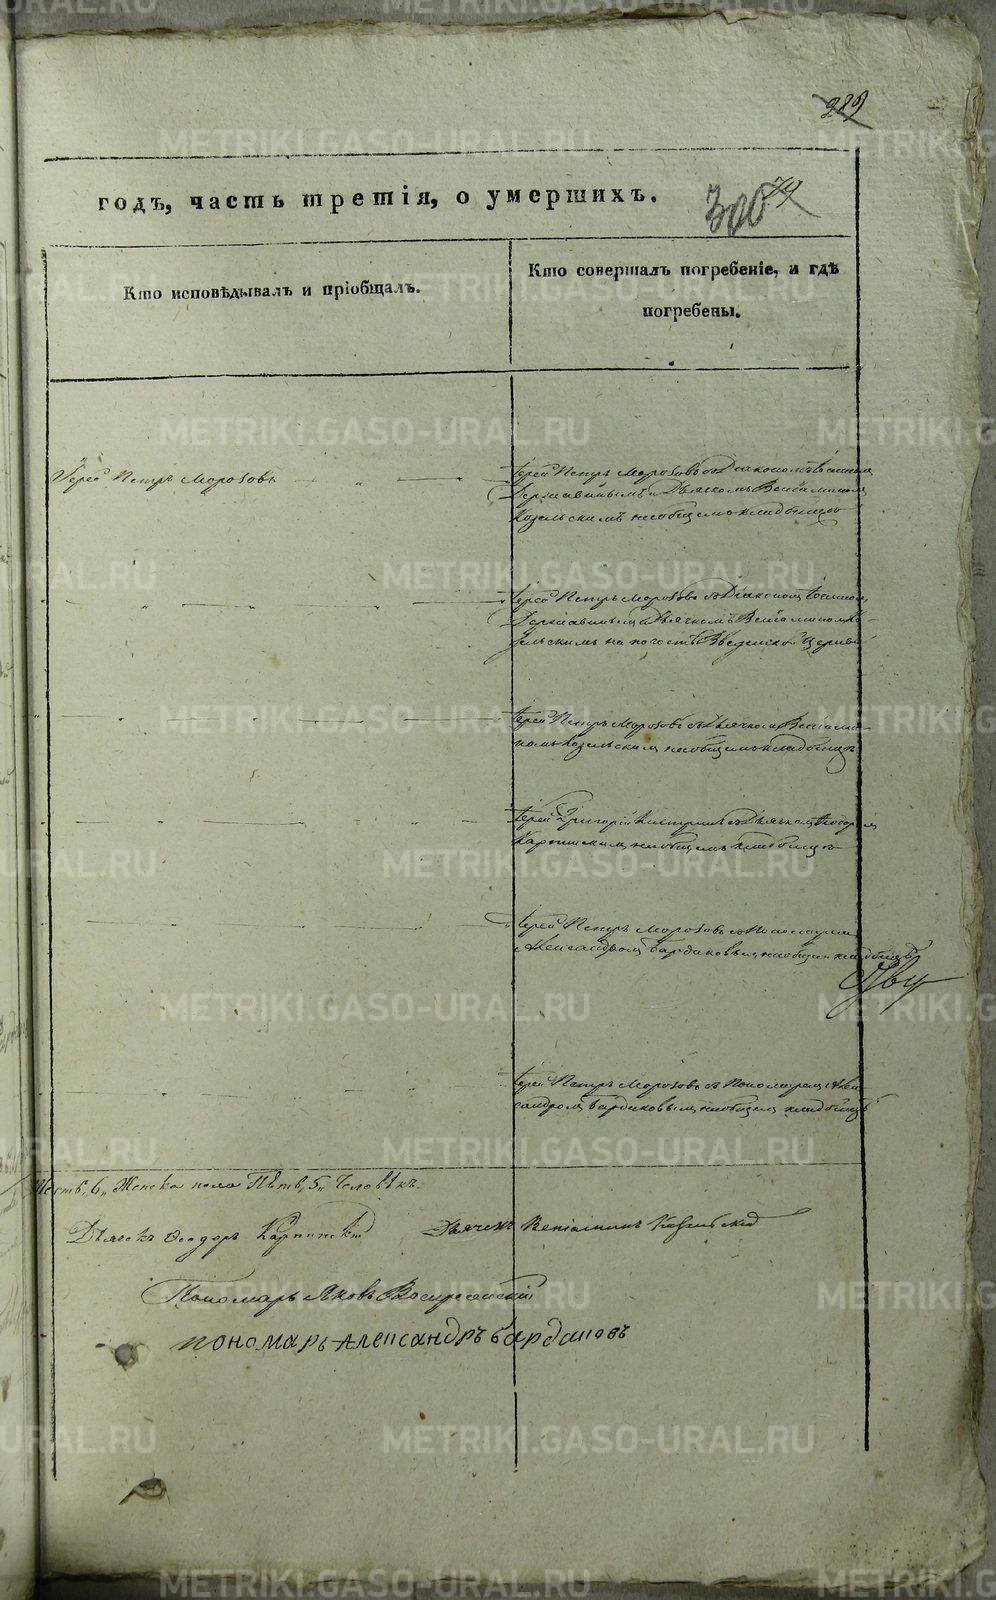 METRIKI.GASO-URAL.RU
289
годъ, часть третія, о умершихъ.
300
Кто исповѣдывалъ и пріобщалъ.
Кто совершалъ погребеніе, и гдѣ
погребены.
Іерей Петръ Морозовъ
Іерей Петръ Морозовъ съ Діакономъ
Державинымъ и Дьячкомъ Веніаминомъ
Козельскимъ на общемъ кладбищѣ
Іерей Петръ Морозовъ съ Діакономъ
Державинымъ и Дьячкомъ Веніаминомъ Ко-
зельскимъ на погостѣ Введенской Церкви
Іерей Петръ Морозовъ съ Дьячкомъ Веніами-
номъ Козельскимъ на общемъ кладбищѣ
Іерей Григорій съ Дьячкомъ Ѳеодоромъ
Карпинскимъ на общемъ кладбищѣ
Іерей Петръ Морозовъ съ Пономаремъ
Александромъ Бардаковымъ на общемъ кладбищѣ
Іерей Петръ Морозовъ съ Пономаремъ Алек-
сандромъ Бардаковымъ на общемъ кладбищѣ
6, Женска пола Пять, 5, Человѣкъ.
Дьячекъ Ѳеодоръ Карпинскій
Дьячекъ Веніаминъ Козельскій
Пономарь Яковъ Воскресенскій
пономарь Александръ Бардаковъ